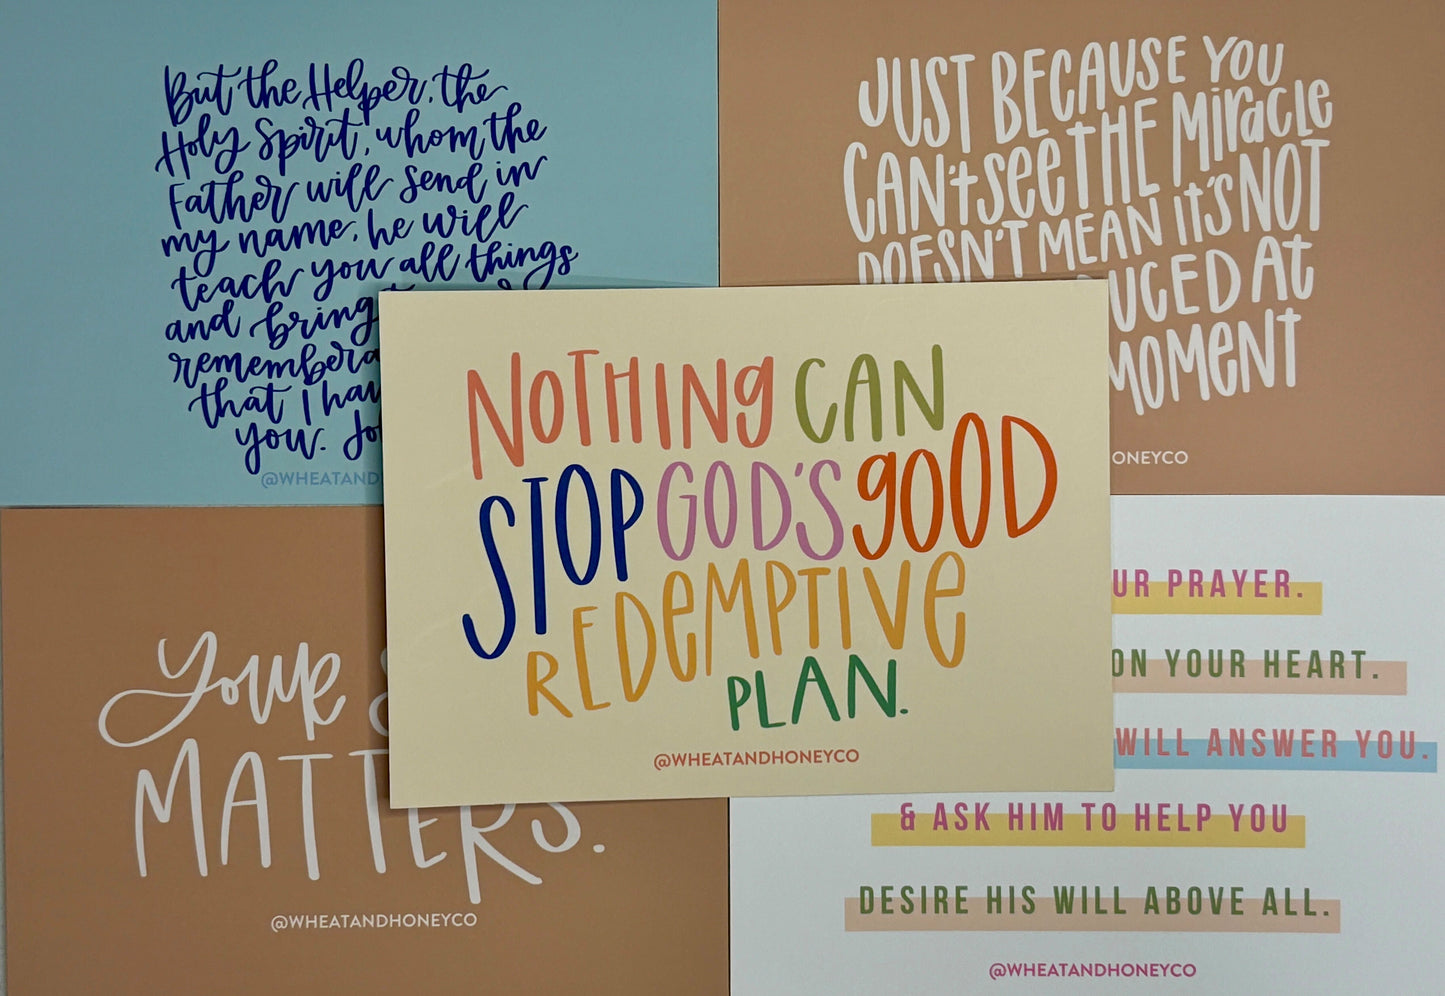 But the Helper, the
Holy Spirit, whom the
Father will send in
my name, he will
teach you all things
and bring
that I
you.
@WHEATAND
JUST BECAUSE YOU
CAN't see THE Miracle
DOESN'T MEAN it's NOT
UCED At
MOMENT
ONEYCO
NOTHING CAN
STOP GOD'S gOOD
REDeMPTIVe
PLAN.
@WHEATANDHONEYCO
your
MATTERS.
@WHEATANDHONEYCO
UR PRAYER.
ON YOUR HEART.
WILL ANSWER YOU.
& ASK HIM TO HELP YOU
DESIRE HIS WILL ABOVE ALL.
@WHEATANDHONEYCO